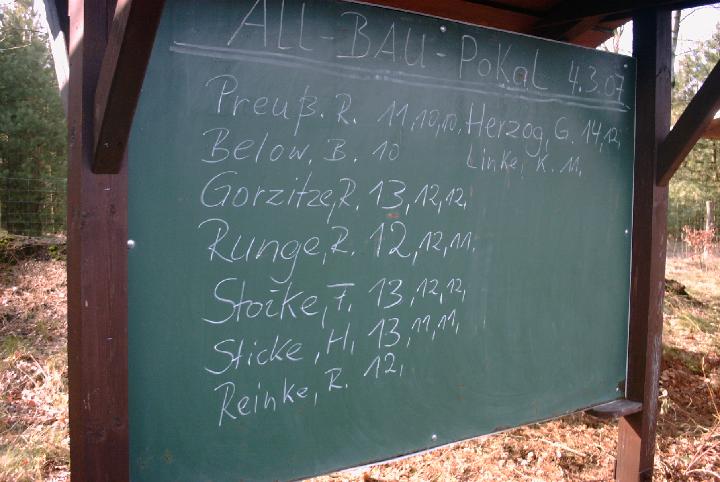 ALL-BAU-Pokal 4.3.07
Preuß. R. 11,10,10,
Below, B. 10
Gorzitze, R. 13,12,12,
Runge, R. 12,12,11,
Storke, F, 13,12,12,
Sticke, H, 13,11,11,
Reinke, R. 12,
Herzog, G. 14,12,
Linke, K. 11,